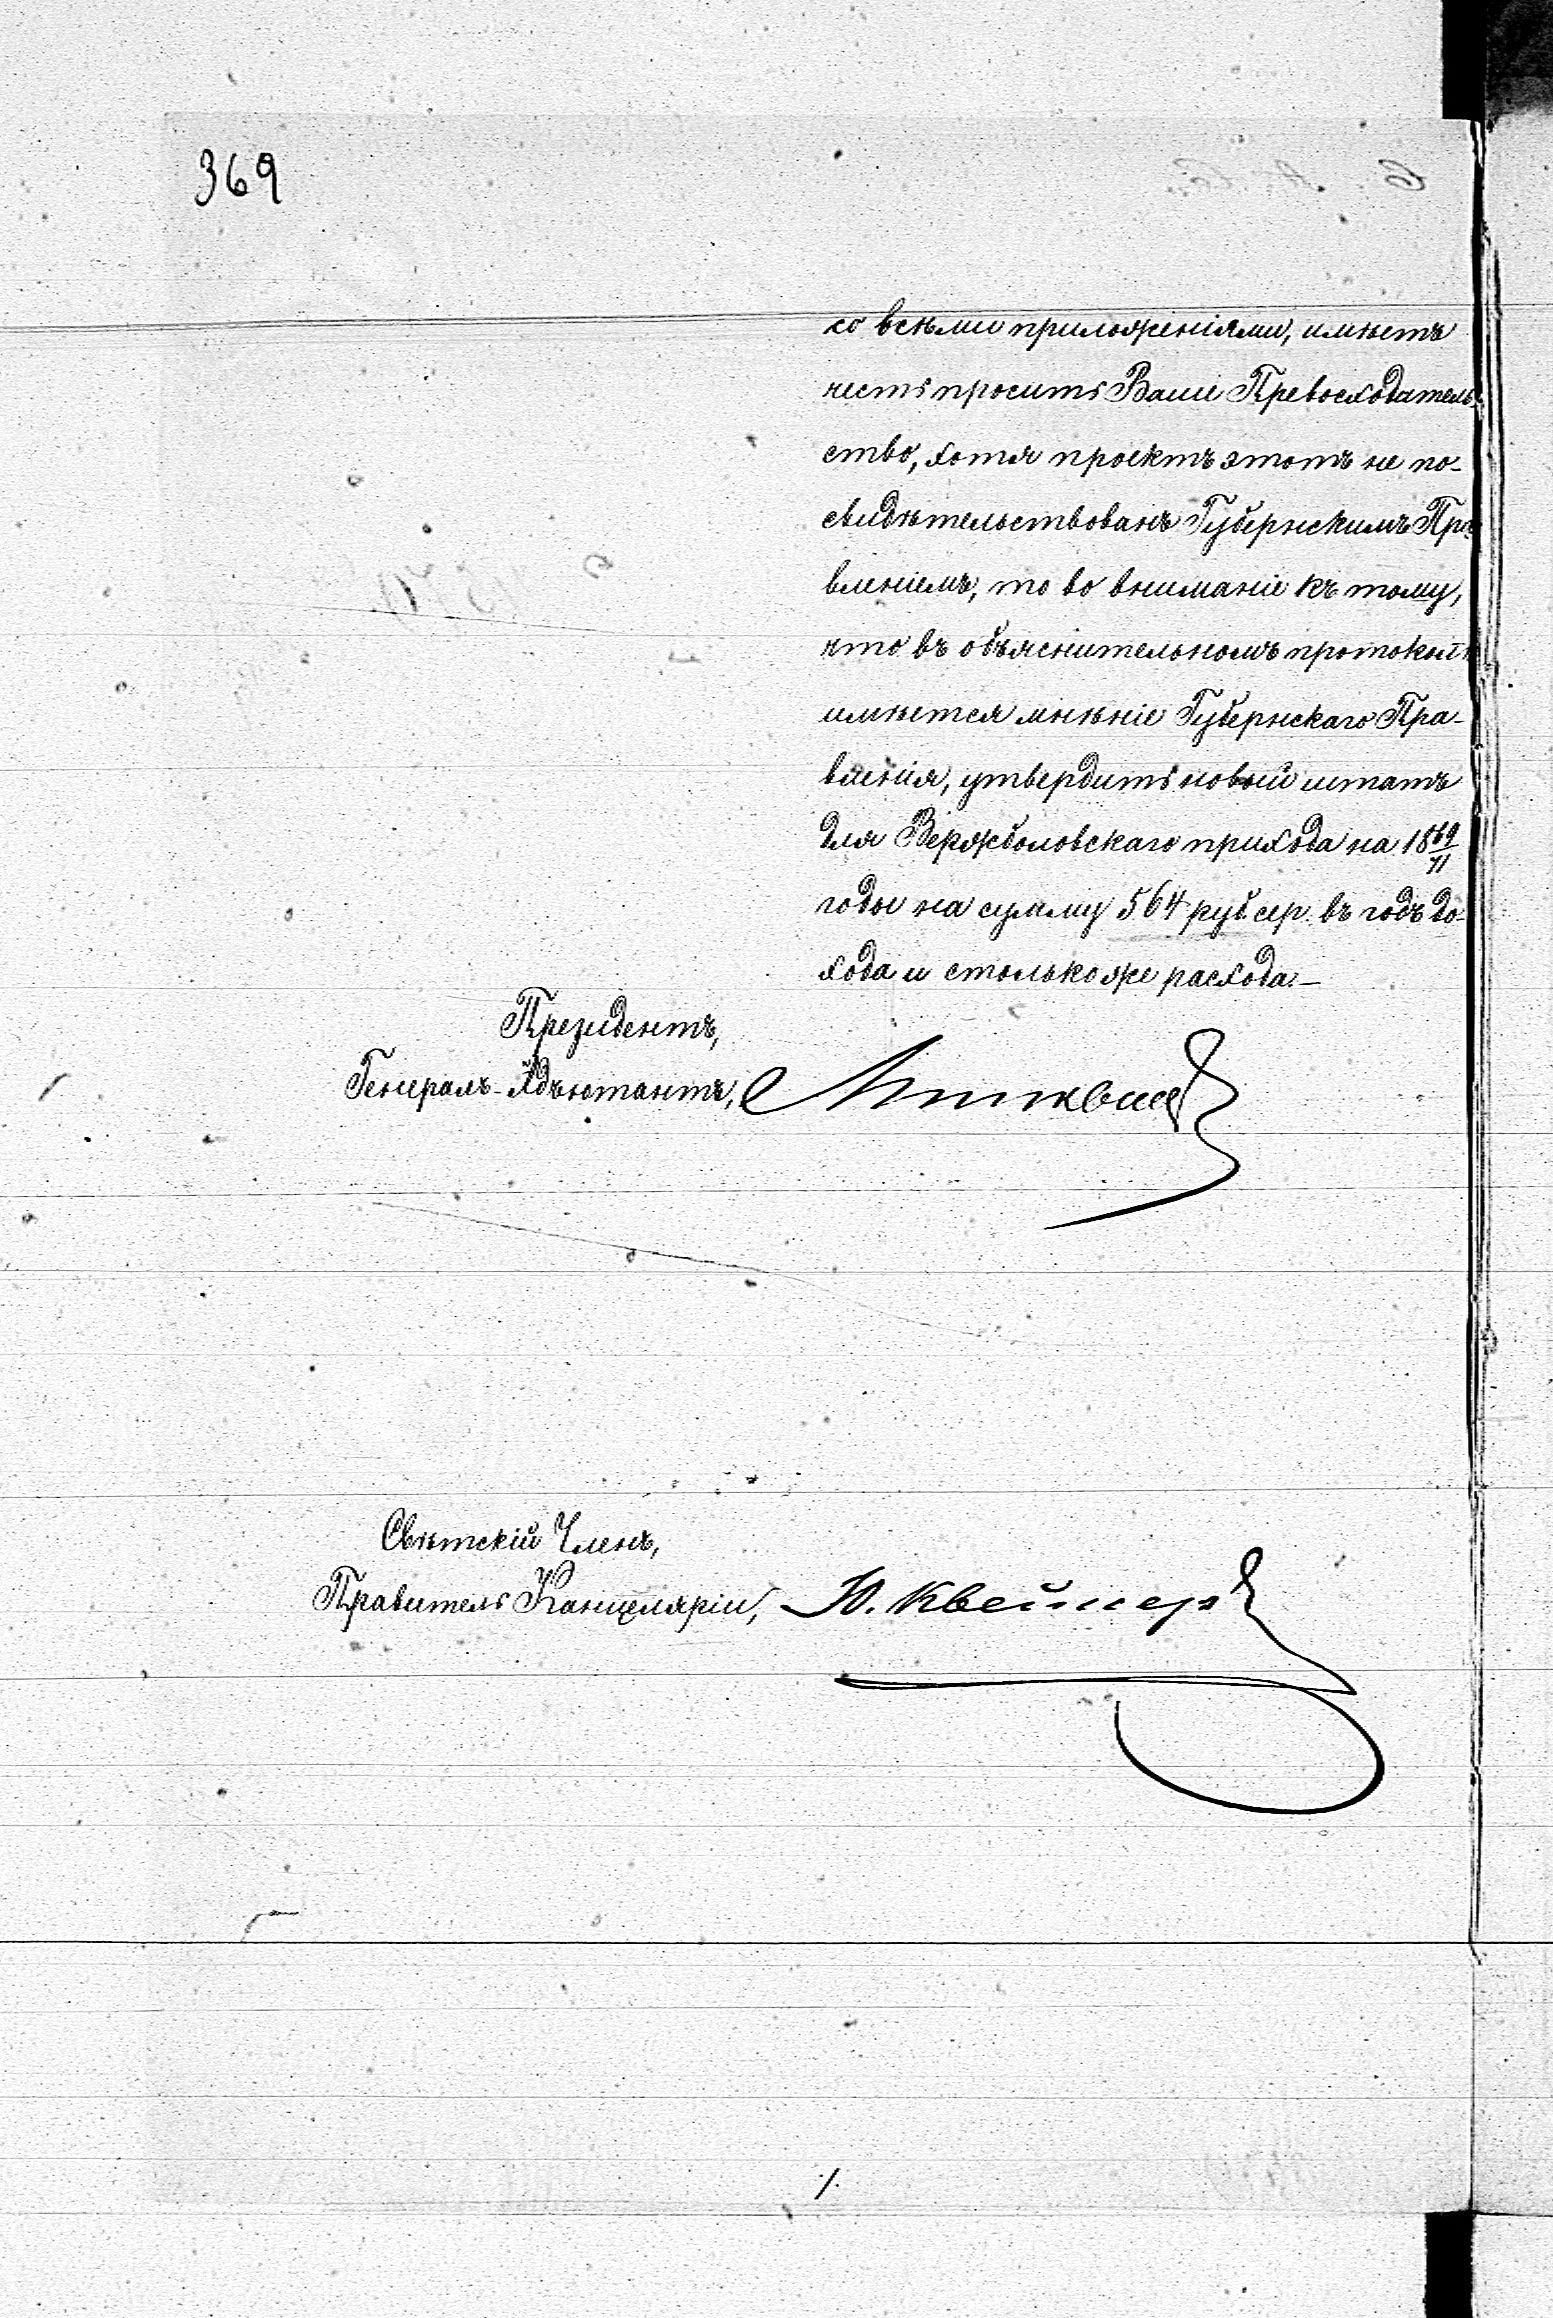 369
со всѣми приложеніями, имѣетъ
честь просить Ваше Превосходитель-
ство, хотя проектъ этотъ не по-
свидѣтельствованъ Губернскимъ Пра
вленіемъ, то во вниманіе къ тому,
что въ объяснительномъ протоколѣ
имѣется мнѣніе Губернскаго Пра-
вленія, утвердить новый штатъ
для Вержболовскаго прихода на 18 69/71
годы на сумму 564 руб сер. въ годъ до-
хода и столькоже расхода.—
Президентъ,
Генералъ-Адъютантъ,
Свѣтскій Членъ,
Правитель Канцеляріи, Ю.
./.